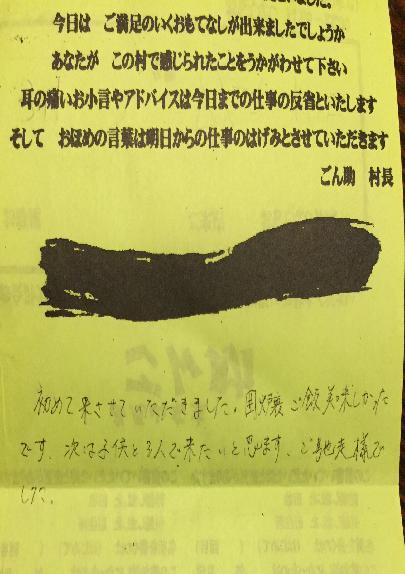 今日は ご満足のいくおもてなしが出来ましたでしょうか
あなたが この村で感じられたことをうかがわせて下さい
耳の痛いお小言やアドバイスは今日までの仕事の反省といたします
そして おほめの言葉は明日からの仕事のはげみとさせていただきます
ごん助 村長
初めて来させていただきました。囲炉裏ご飯美味しかった
です。次は子供と3人で来たいと思います。ご馳走様で
した。